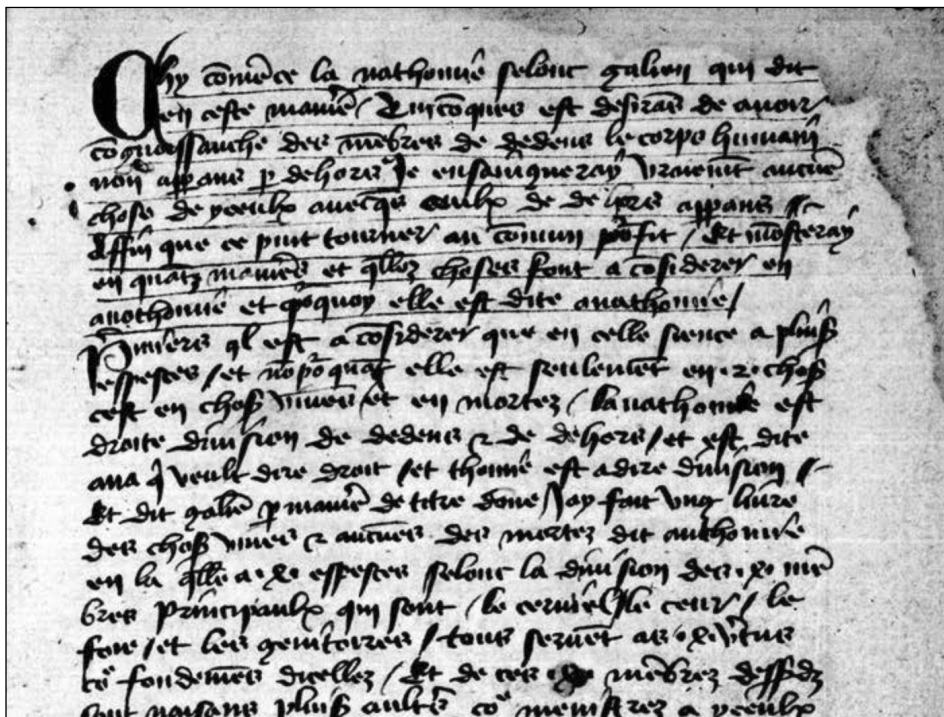 Chy cõmẽce la nathomiẽ selonc galien qui dit
en ceste maniẽ / Quicõques est desirãs de avoir
cõgnoissanche des mẽbres de dedens le corps humain
nõn appans p dehors Je ensaigneray vraiemt aucũe
chose de yceulx avecqs ceulx de dehors appans
Affin que ce puit tourner au cõmun pͦfit / Et mõsteray
en quatz maniẽs et qlles choses sont a cõsiderer en
anothomiẽ et pͦquoy elle est dite anathomie /
Pmiers ql est a cõsiderer que en celle sience a pluiss
espesces / et nõpͦquãt elle est seulemẽt en .2. chos
cest en chos vives et en mortez / la nathomie est
droite division de dedens & de dehors / et est dite
ana q veult dire droit / et thomiẽ est a dire division /
Et dit galiẽ p maniẽ de titre dõne Jay fait ung livre
des chos vives & aucũes des mortez dit anthomie
en la qlle a .xi. espesces selonc la division des .xi. mẽ
bres principaulx qui sont / le cerviel / le ceur / le
foie / et les genitoires / tous servẽt as .xi. vtus
cõ fondemẽs dicellez / Et de ces mẽbrez dessdz
sont naisans pluiss aultrs cõ menistrez a yceulx